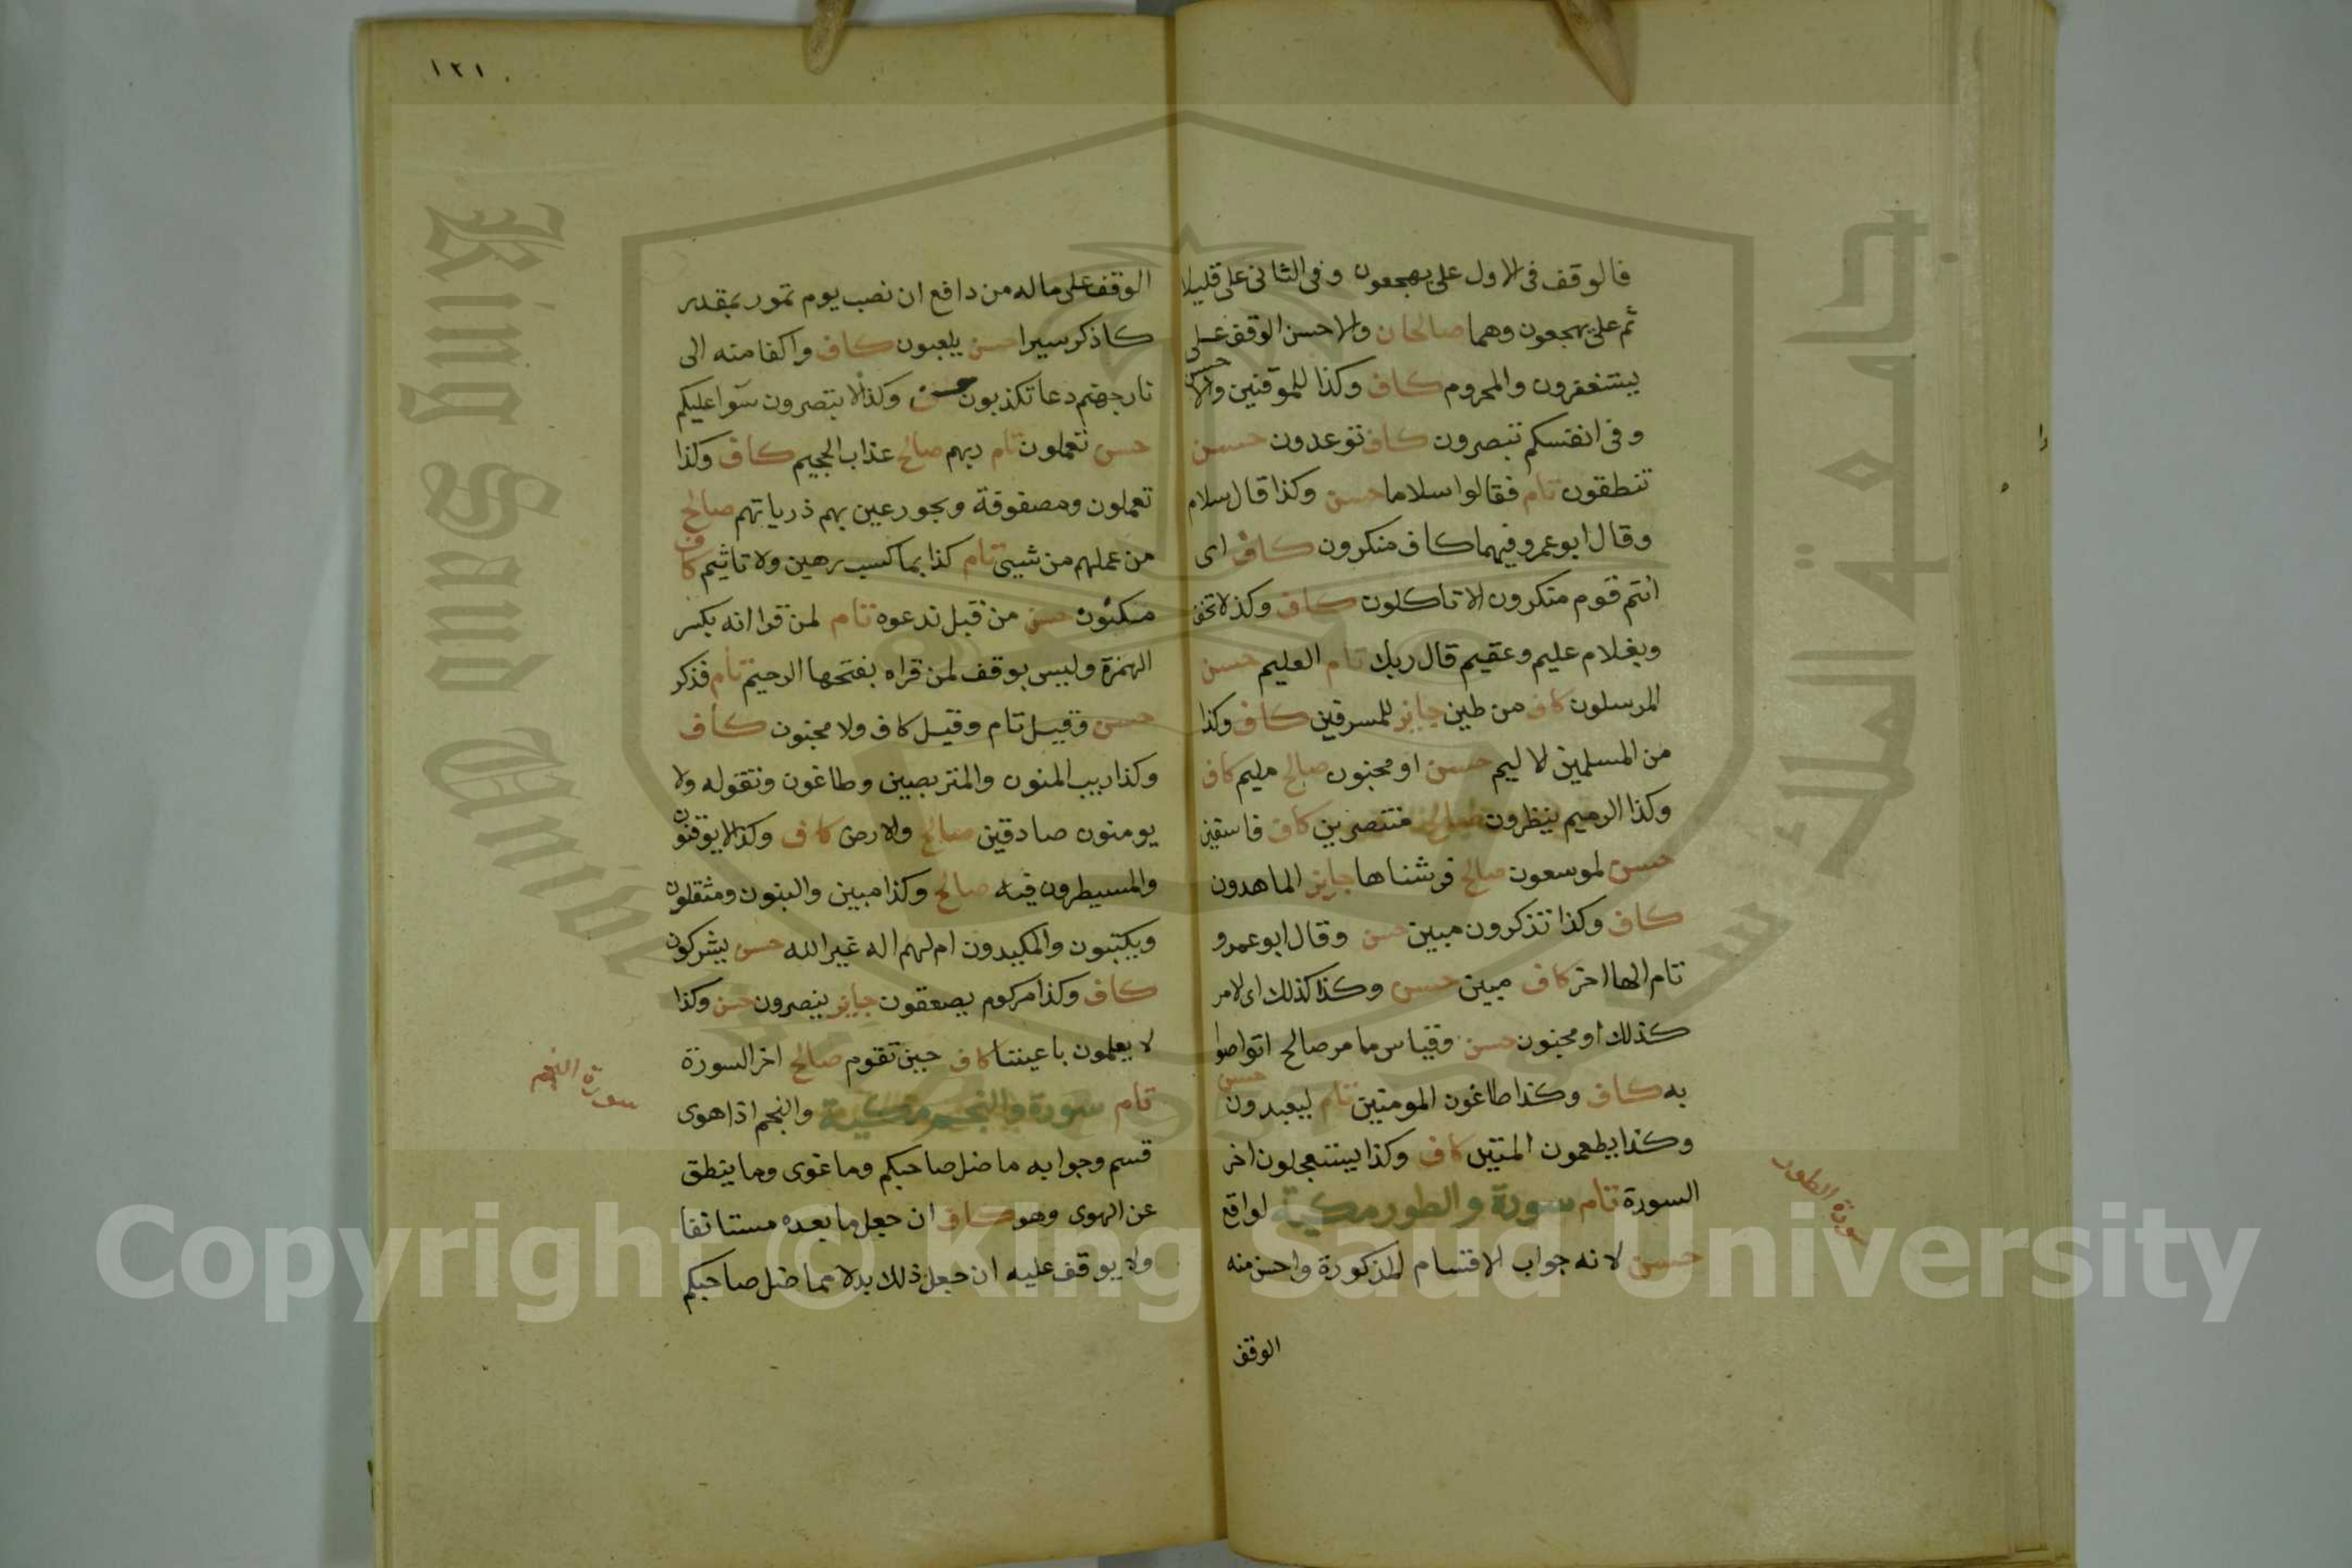 فالوقف فى الاول على يهجعون وفى الثانى على قليلا
ثم على يهجعون وهما صالحان والاحسن الوقف على
يستغفرون والمحروم كاف وكذا للموقنين والا حسن
وفى انفسكم تبصرون كاف توعدون حسن
تنطقون تام فقالوا سلاما حسن وكذا قال سلام
وقال ابو عمرو فيهما كاف منكرون كاف اى
انتم قوم منكرون الا تاكلون كاف وكذ لا تخف
وبغلام عليم وعقيم قال ربك تام العليم حسن
المرسلون كاف من طين جايز للمسرفين كاف وكذا
من المسلمين لا ليم حسن او مجنون صالح مليم كاف
وكذا الرميم ينظرون صالح منتصرين كاف فاسقين
حسن لموسعون صالح فرشناها جايز الماهدون
كاف وكذا تذكرون مبين حسن وقال ابو عمرو
تام الها اخر كاف مبين حسن وكذا كذلك اى الامر
كذلك او مجنون حسن وقياس ما مر صالح اتواصوا
به كاف وكذا طاغون المومنين تام ليعبدون حسن
وكذا يطعمون المتين كاف وكذا يستعجلون اخر
السورة تام سورة والطور مكية لواقع
حسن لانه جواب الاقتسام المذكورة واحسن منه
الوقف
سورة الطور
١٢١
الوقف على ماله من دافع ان نصب يوم تمور بمقدر
كاذكر سيرا حسن يلعبون كاف واكفا منه الى
نار جهنم دعا تكذبون حسن وكذا لا تبصرون سوا عليكم
حسن تعملون تام ربهم صالح عذاب الجحيم كاف وكذا
تعملون ومصفوفة وبحور عين بهم ذرياتهم صالح
من عملهم من شيى تام كذا بما كسب رهين ولا تاثيم كاف
مكنون حسن من قبل ندعوه تام لمن قرا انه بكسر
الهمزة وليس بوقف لمن قراه بفتحها الرحيم تام فذكر
حسن وقيل تام وقيل كاف ولا مجنون كاف
وكذا ريب المنون والمتربصين وطاغون وتقوله ولا
يومنون صادقين صالح والارض كاف وكذا لا يوقنون
والمسيطرون فيه صالح وكذا مبين والبنون ومثقلون
ويكتبون والمكيدون ام لهم اله غير الله حسن يشركون
كاف وكذا مركوم يصعقون جايز ينصرون حسن وكذا
لا يعلمون باعيننا كاف حين تقوم صالح اخر السورة
تام سورة والنجم مكية والنجم اذا هوى
قسم وجوابه ما ضل صاحبكم وما غوى وما ينطق
عن الهوى وهو كاف ان جعل ما بعده مستانفا
ولا يوقف عليه ان جعل ذلك بدلا مما ضل صاحبكم
سورة النجم
King Saud Univer
جامعة الملك س
Copyright © King Saud University